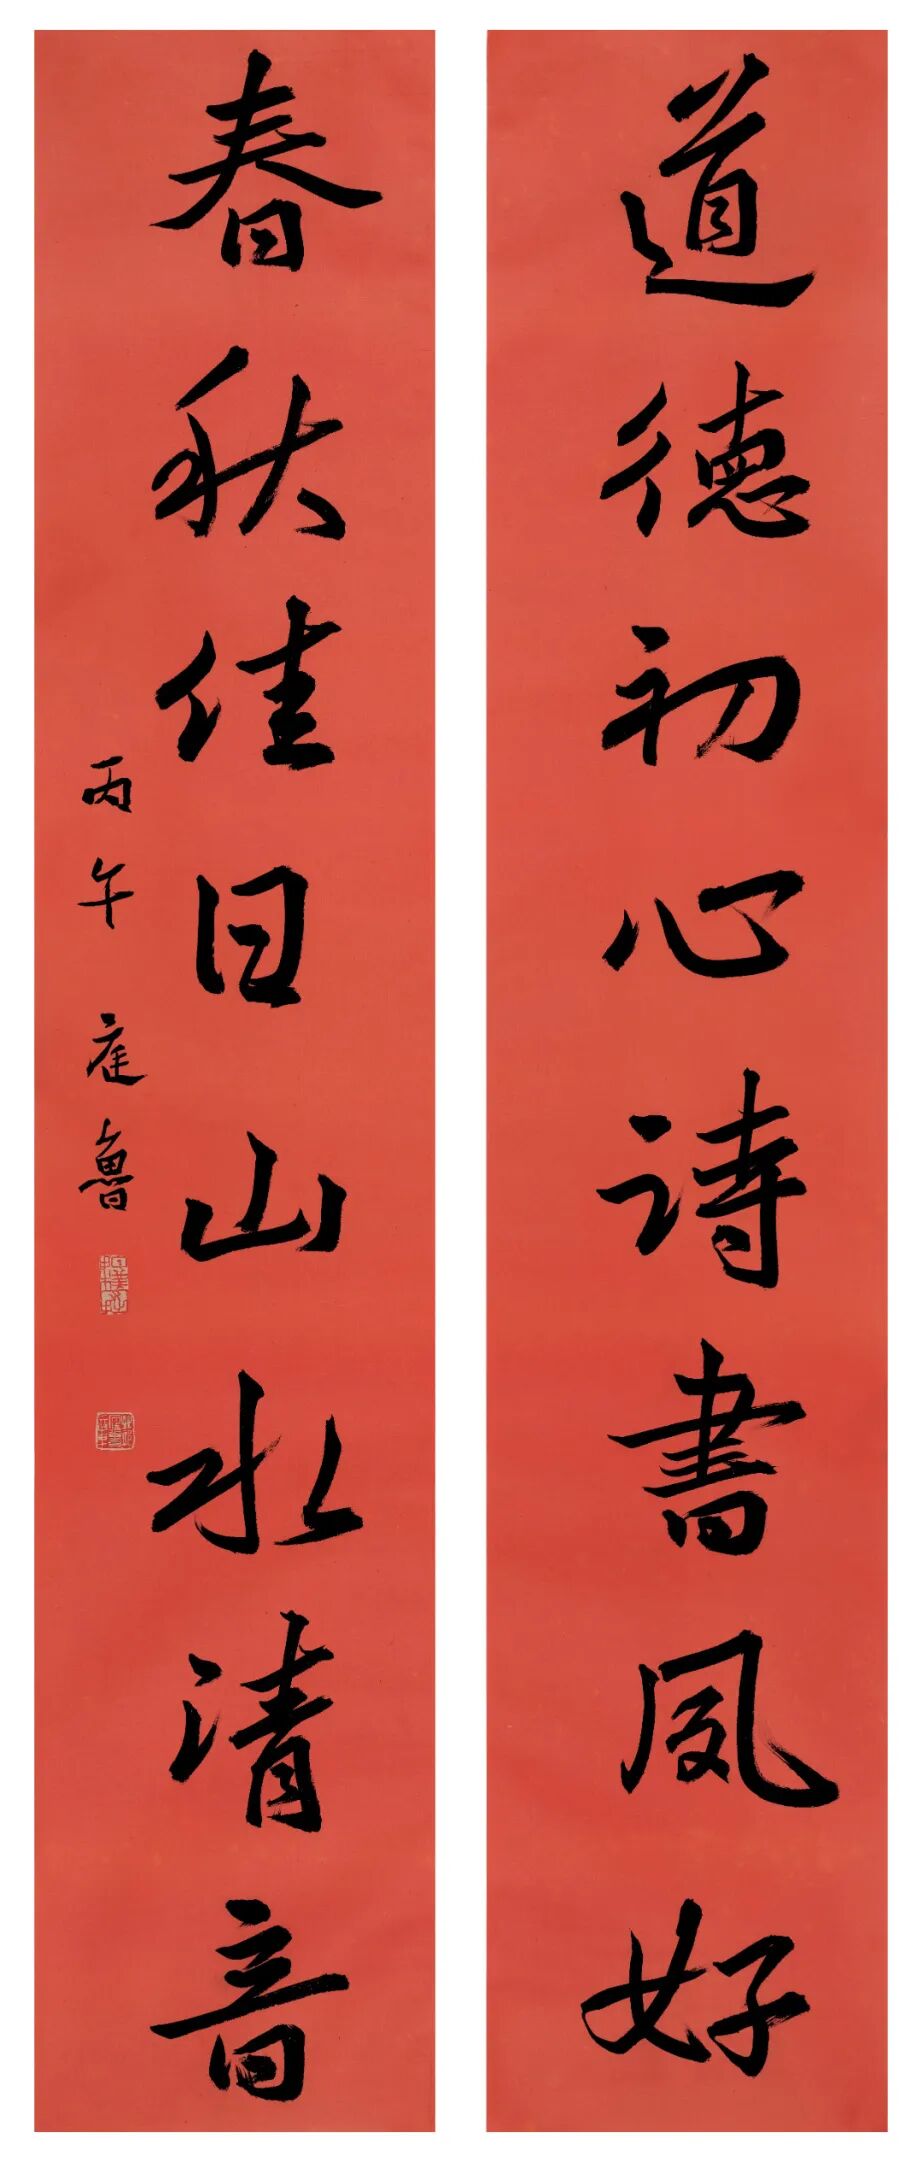 道德初心詩書夙好
春秋佳日山水清音
丙午庭魯